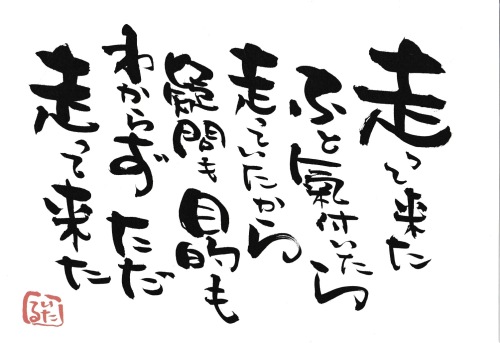 走って来た
ふと氣付いたら
走っていたから
疑問も目的も
わからずただ
走って来た